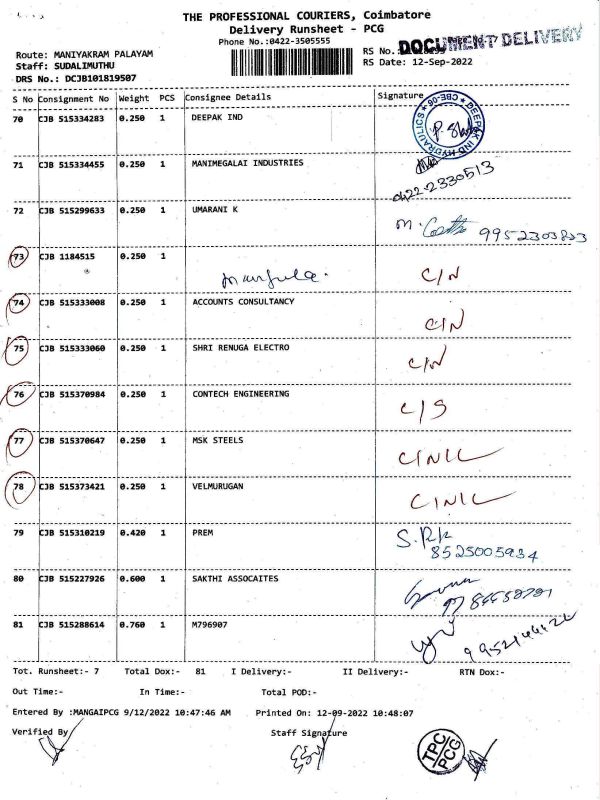 THE PROFESSIONAL COURIERS, Coimbatore
Delivery Runsheet - PCG
Phone No.:0422-3505555
DOCUMENT DELIVERY
Route: MANIYAKRAM PALAYAM
RS No.:
Staff: SUDALIMUTHU
RS Date: 12-Sep-2022
DRS No.: DCJB101819507
S No Consignment No Weight PCS Consignee Details Signature
70 CJB 515334283 0.250 1 DEEPAK IND
DEEPAK IND HYDRAULICS * CBE-06 *
71 CJB 515334455 0.250 1 MANIMEGALAI INDUSTRIES 0422-2330513
72 CJB 515299633 0.250 1 UMARANI K
73 CJB 1184515 0.250 1 C/N
Manjula.
74 CJB 515333008 0.250 1 ACCOUNTS CONSULTANCY C/N
75 CJB 515333060 0.250 1 SHRI RENUGA ELECTRO C/N
76 CJB 515370984 0.250 1 CONTECH ENGINEERING C/S
77 CJB 515370647 0.250 1 MSK STEELS
78 CJB 515373421 0.250 1 VELMURUGAN
79 CJB 515310219 0.420 1 PREM
8525005934
80 CJB 515227926 0.600 1 SAKTHI ASSOCAITES
81 CJB 515288614 0.760 1 M796907
Tot. Runsheet:- 7 Total Dox:- 81 I Delivery:- II Delivery:- RTN Dox:-
Out Time:- In Time:- Total POD:-
Entered By :MANGAIPCG 9/12/2022 10:47:46 AM Printed On: 12-09-2022 10:48:07
Verified By Staff Signature
TPC
PCG